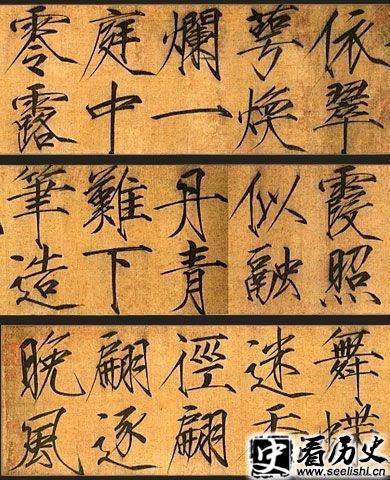 依翠
萼煥
爛一
庭中
零露
霞照
似融
丹青
難下
筆造
舞蝶
迷香
徑翩
翩逐
晚風
史看历史
www.seelishi.cn